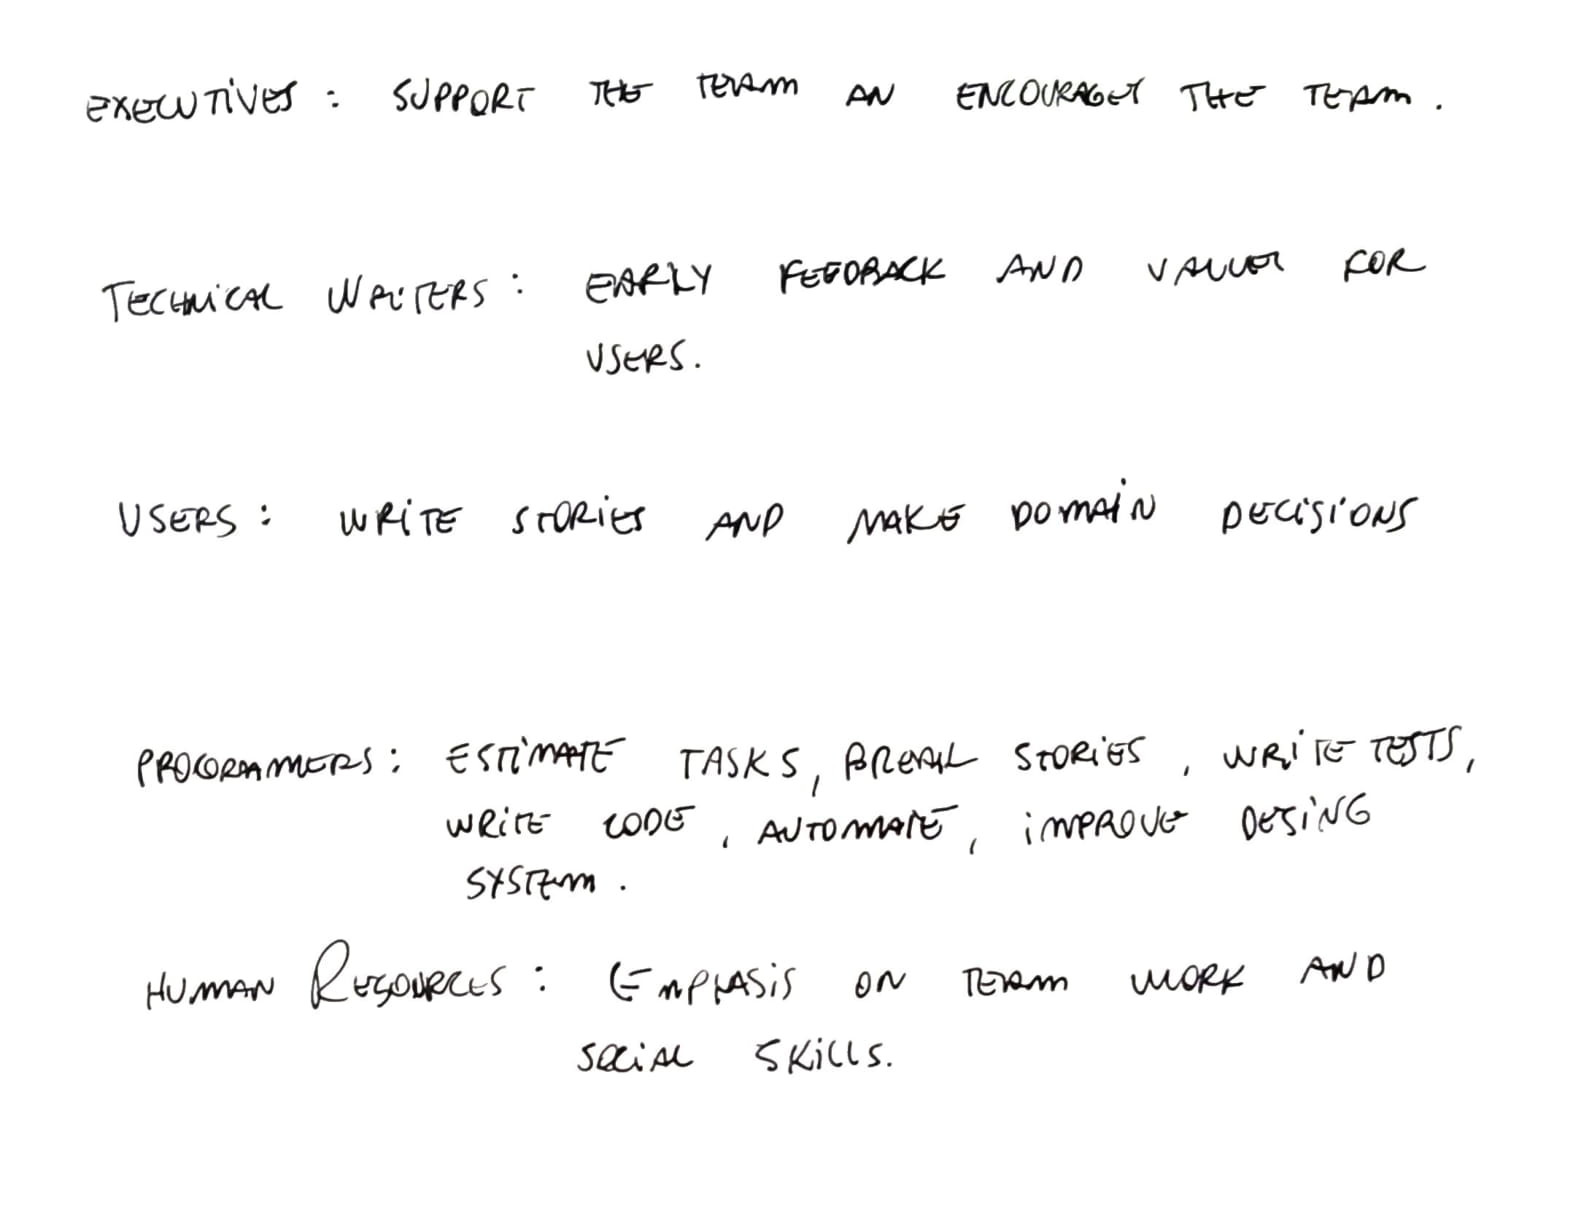 EXECUTIVES : SUPPORT THE TEAM AN ENCOURAGES THE TEAM .
TECHNICAL WRITERS : EARLY FEEDBACK AND VALUES FOR
USERS.
USERS : WRITE STORIES AND MAKE DOMAIN DECISIONS
PROGRAMMERS : ESTIMATE TASKS, BREAK STORIES , WRITE TESTS,
WRITE CODE , AUTOMATE , IMPROVE DESING
SYSTEM .
HUMAN RESOURCES : EMPHASIS ON TEAM WORK AND
SOCIAL SKILLS.